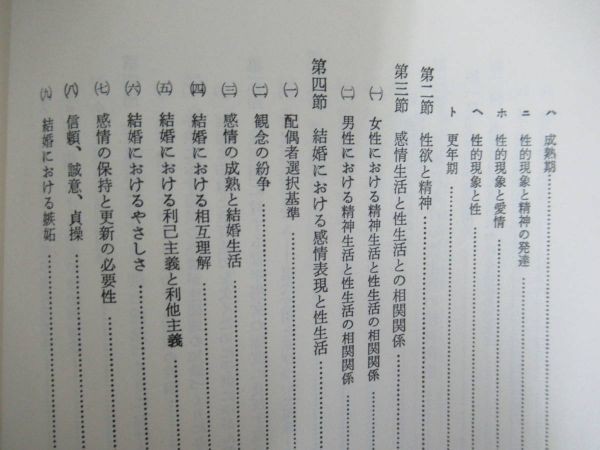 ハ 成熟期
ニ 性的現象と精神の発達
ホ 性的現象と愛情
ヘ 性的現象と性
ト 更年期
第二節 性欲と精神
第三節 感情生活と性生活との相関関係
㈠ 女性における精神生活と性生活の相関関係
㈡ 男性における精神生活と性生活の相関関係
第四節 結婚における感情表現と性生活
㈠ 配偶者選択基準
㈡ 観念の紛争
㈢ 感情の成熟と結婚生活
㈣ 結婚における相互理解
㈤ 結婚における利己主義と利他主義
㈥ 結婚におけるやさしさ
㈦ 感情の保持と更新の必要性
㈧ 信頼、誠意、貞操
㈨ 結婚における嫉妬